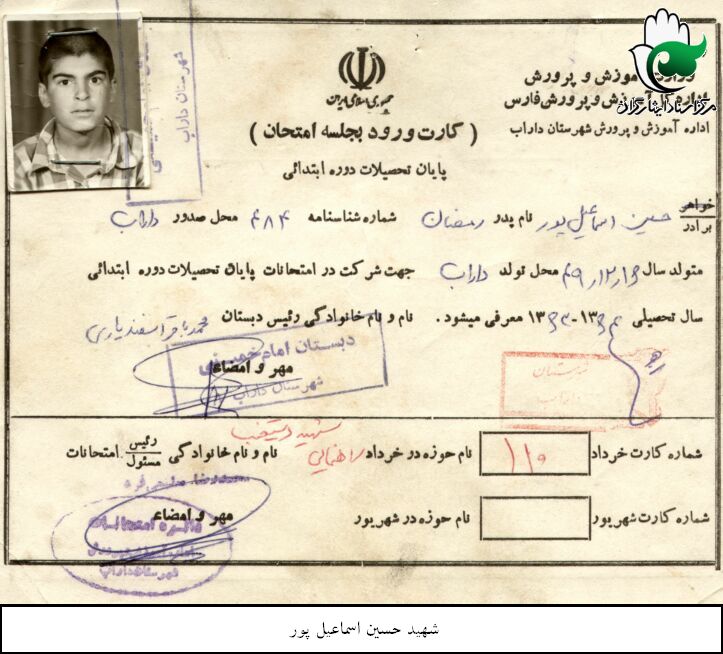 جمهوری اسلامی ایران
وزارت آموزش و پرورش
اداره کل آموزش و پرورش فارس
اداره آموزش و پرورش شهرستان داراب
مرکز اسناد ایثارگران
( کارت ورود بجلسه امتحان )
پایان تحصیلات دوره ابتدائی
شهرستان داراب
خواهر
برادر حسین اسماعیل پور نام پدر رمضان شماره شناسنامه ۴۸۴ محل صدور داراب
متولد سال محل تولد داراب جهت شرکت در امتحانات پایان تحصیلات دوره ابتدائی
سال تحصیلی معرفی میشود . نام و نام خانوادگی رئیس دبستان محمد باقر اسفندیاری
دبستان امام خمینی
شهرستان داراب
مهر و امضاء
شماره کارت خرداد ۱۱۰ نام حوزه در خرداد راهنمائی شهید دستغیب نام و نام خانوادگی رئیس مسئول امتحانات
شماره کارت شهریور نام حوزه در شهریور مهر و امضاء
دایره امتحانات
شهرستان داراب
شهید حسین اسماعیل پور